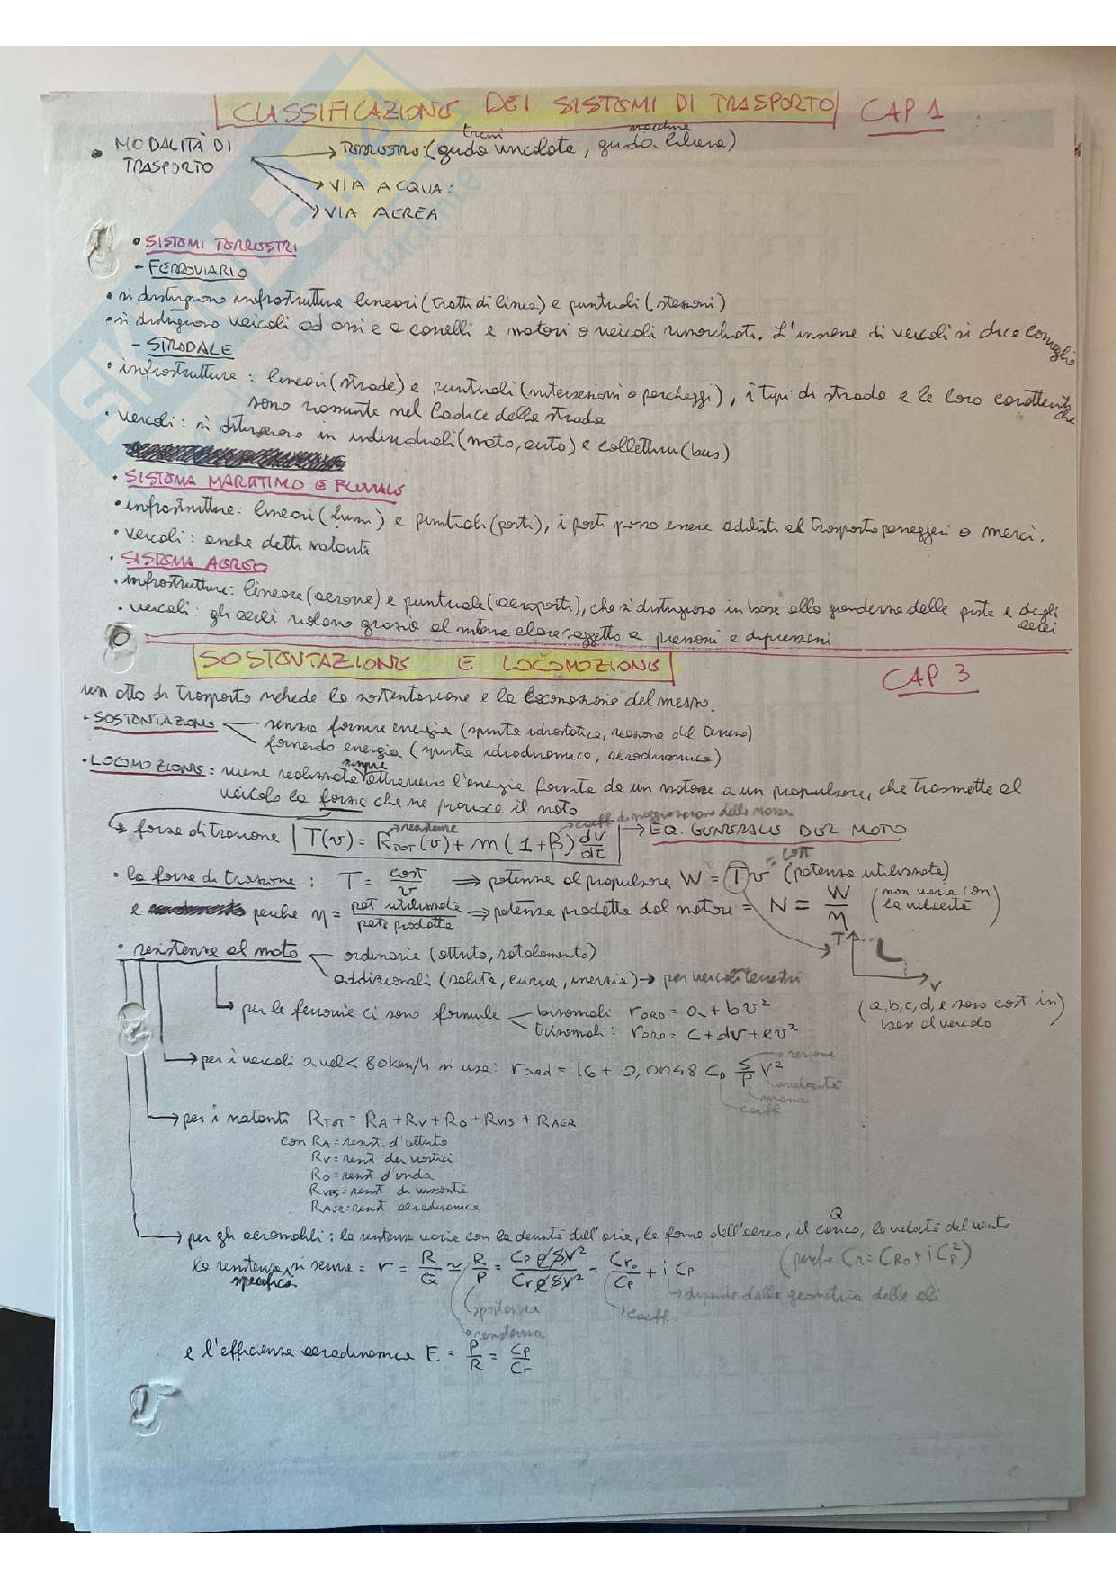 CLASSIFICAZIONE DEI SISTEMI DI TRASPORTO CAP 1
treni macchine
• MODALITÀ DI TRASPORTO → TERRESTRE (guida vincolata, guida libera)
→ VIA ACQUA:
→ VIA AEREA
• SISTEMI TERRESTRI
- FERROVIARIO
• si distinguono infrastrutture lineari (tratti di linea) e puntuali (stazioni)
• si distinguono veicoli ad assi e a carrelli e motori o veicoli rimorchiati. L'insieme di veicoli si dice convoglio
- STRADALE
• infrastrutture: lineari (strade) e puntuali (intersezioni o parcheggi), i tipi di strade e le loro caratteristiche
sono riassunte nel Codice della strada
• veicoli: si distinguono in individuali (moto, auto) e collettivi (bus)
• SISTEMA MARITTIMO E FLUVIALE
• infrastrutture: lineari (fiumi) e puntuali (porti), i porti posso essere adibiti al trasporto passeggeri o merci.
• veicoli: anche detti natanti
• SISTEMA AEREO
• infrastrutture: lineare (aerovie) e puntuale (aeroporti), che si distinguono in base alla grandezza delle piste e degli aerei
• veicoli: gli aerei volano grazie al motore e pressioni e depressioni
SOSTENTAZIONE E LOCOMOZIONE CAP 3
un atto di trasporto richiede la sostentazione e la locomozione del mezzo.
• SOSTENTAZIONE senza fornire energia (spinta idrostatica, reazione del terreno)
fornendo energia (spinta idrodinamica, aerodinamica)
• LOCOMOZIONE: viene realizzata sempre attraverso l'energia fornita da un motore a un propulsore, che trasmette al
veicolo la forza che ne provoca il moto
resistenze coeff. di maggiorazione della massa
→ forza di trazione T(v) = R_TOT(v) + m(1+β) dv/dt → EQ. GENERALE DEL MOTO
• la forza di trazione: T = cost/v ⇒ potenza al propulsore W = T v = cost (potenza utilizzata)
e perché η = pot utilizzata/pot prodotta ⇒ potenza prodotta dal motore = N = W/η (non varia con la velocità)
T
v
• resistenze al moto ordinarie (attrito, rotolamento)
addizionali (salita, curva, inerzia) → per veicoli terrestri
→ per le ferrovie ci sono formule binomali r_ORD = a + bv²
trinomali: r_ORD = c + dv + ev²
(a, b, c, d, e sono cost in base al veicolo)
→ per i veicoli a vel < 80 km/h si usa: r_ord = 16 + 0,0048 C_D S/P v²
sezione
velocità
coeff
→ per i natanti R_TOT = R_A + R_V + R_O + R_VIS + R_AER
con R_A = resist. d'attrito
R_V = resist dei vortici
R_O = resist d'onda
R_VIS = resist di viscosità
R_AER = resist aerodinamica
→ per gli aeromobili: la resistenza varia con la densità dell'aria, la forma dell'aereo, il carico, la velocità del vento
Q
la resistenza specifica si scrive = r = R/Q ≃ R/P = C_r ρ S v²/C_p ρ S v² = C_r0/C_p + i C_p (perché C_r = C_R0 + i C_p²)
→ dipende dalla geometria delle ali
→ coeff.
portanza
e l'efficienza aerodinamica E = P/R = C_P/C_r